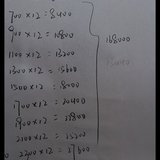 700×12=8400
900×12=10800
1100×12=13200
1300×12=15600
1500×12=18000
1700×12=20400
1900×12=22800
2100×12=25200
2300×12=27600
168000